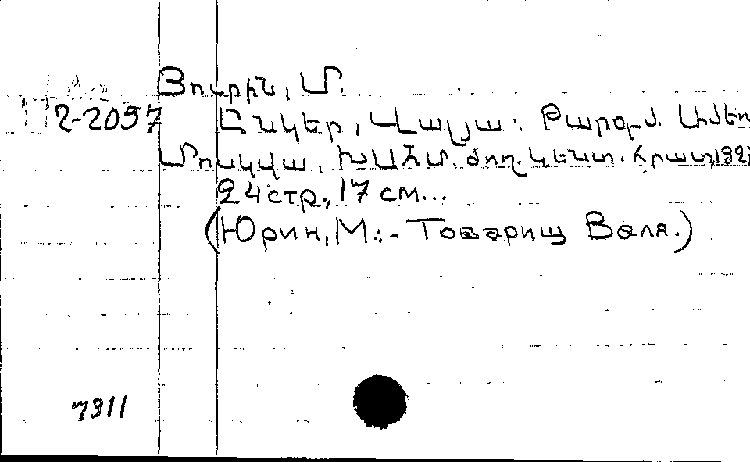 Յուրին, Մ.
2-2057 Ընկեր, Վալյա: Թարգմ.
Մոսկվա, ԽՍՀՄ. ժող. կենտ. հրատ, 192
24 стр., 17 см...
(Юрин, М:.- Товарищ Валя.)
7311